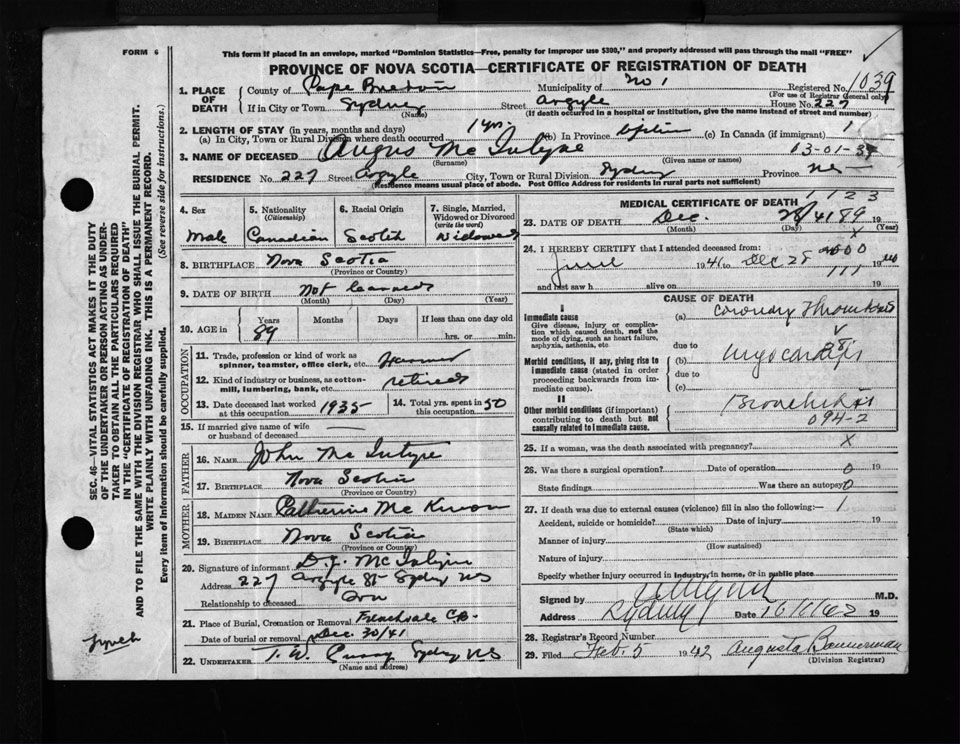 FORM 6
This form if placed in an envelope, marked "Dominion Statistics—Free, penalty for improper use $300," and properly addressed will pass through the mail "FREE"
PROVINCE OF NOVA SCOTIA—CERTIFICATE OF REGISTRATION OF DEATH
1. PLACE OF DEATH
County of Cape Breton Municipality of No 1 Registered No. 1039
(For use of Registrar General only)
If in City or Town Sydney Street Argyle House No. 227
(Name) (If death occurred in a hospital or institution, give the name instead of street and number)
2. LENGTH OF STAY (in years, months and days)
(a) In City, Town or Rural Division where death occurred 1 yr. (b) In Province life time (c) In Canada (if immigrant) 1
3. NAME OF DECEASED Angus Mc Intyre 03-01-39
(Surname) (Given name or names)
RESIDENCE No. 227 Street Argyle City, Town or Rural Division Sydney Province NS
(Residence means usual place of abode. Post Office Address for residents in rural parts not sufficient)
4. Sex Male
5. Nationality (Citizenship) Canadian
6. Racial Origin Scotch
7. Single, Married, Widowed or Divorced (write the word) Widowed
8. BIRTHPLACE Nova Scotia
(Province or Country)
9. DATE OF BIRTH Not learned
(Month) (Day) (Year)
10. AGE in Years Months Days If less than one day old
89 hrs. or min.
OCCUPATION
11. Trade, profession or kind of work as spinner, teamster, office clerk, etc. Farmer
12. Kind of industry or business, as cotton-mill, lumbering, bank, etc. retired
13. Date deceased last worked at this occupation 1935 14. Total yrs. spent in this occupation 50
15. If married give name of wife or husband of deceased
FATHER
16. NAME John Mc Intyre
17. BIRTHPLACE Nova Scotia
(Province or Country)
MOTHER
18. MAIDEN NAME Catherine Mc Kinnon
19. BIRTHPLACE Nova Scotia
(Province or Country)
20. Signature of informant D.J. McIntyre
Address 227 Argyle St Sydney NS
Relationship to deceased Son
21. Place of Burial, Cremation or Removal Frenchvale CB.
Date of burial or removal Dec. 30/41
22. UNDERTAKER T. W. Curry Sydney NS
(Name and address)
MEDICAL CERTIFICATE OF DEATH
1 2 3
23. DATE OF DEATH Dec. 28/41 89 19
(Month) (Day) (Year)
X
24. I HEREBY CERTIFY that I attended deceased from:
June 1941 to Dec 28 19
111
and last saw h alive on 19
CAUSE OF DEATH
I
Immediate cause
Give disease, injury or complication which caused death, not the mode of dying, such as heart failure, asphyxia, asthenia, etc.
(a) Coronary Thrombosis
due to
Morbid conditions, if any, giving rise to immediate cause (stated in order proceeding backwards from immediate cause).
(b) Myocarditis
due to
(c)
II
Other morbid conditions (if important) contributing to death but not causally related to immediate cause.
Bronchitis
094-2
25. If a woman, was the death associated with pregnancy? X
26. Was there a surgical operation? Date of operation 0 19
State findings Was there an autopsy 0
27. If death was due to external causes (violence) fill in also the following:— 1
Accident, suicide or homicide? Date of injury 19
(State which)
Manner of injury
(How sustained)
Nature of injury
Specify whether injury occurred in industry, in home, or in public place
Signed by M.D.
Address Sydney Date 19
28. Registrar's Record Number
29. Filed Feb. 5 1942 Augusta Bannerman
(Division Registrar)
SEC. 46—VITAL STATISTICS ACT MAKES IT THE DUTY
OF THE UNDERTAKER OR PERSON ACTING AS UNDERTAKER TO OBTAIN ALL THE PARTICULARS REQUIRED
IN THE "CERTIFICATE OF REGISTRATION OF DEATH"
AND TO FILE THE SAME WITH THE DIVISION REGISTRAR WHO SHALL ISSUE THE BURIAL PERMIT.
WRITE PLAINLY WITH UNFADING INK. THIS IS A PERMANENT RECORD.
Every item of information should be carefully supplied. (See reverse side for instructions.)
Lynch